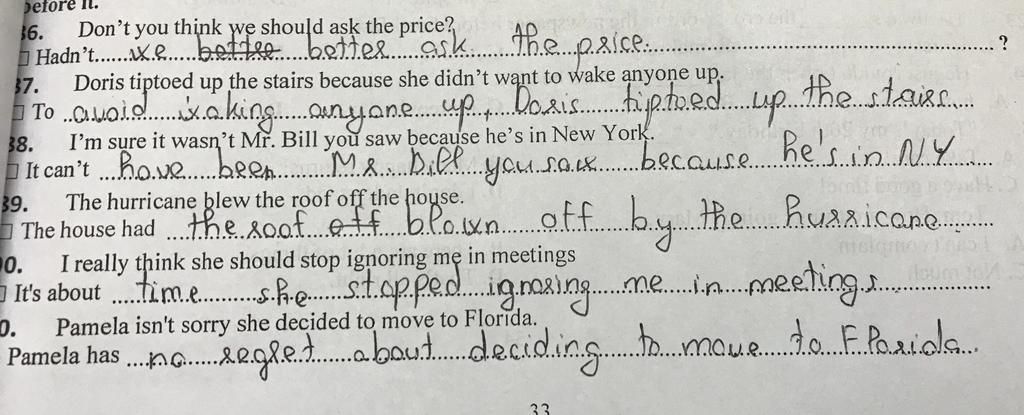 before it.
36. Don't you think we should ask the price?
Hadn't we better ask the price ?
37. Doris tiptoed up the stairs because she didn't want to wake anyone up.
To avoid waking anyone up, Doris tiptoed up the stairs
38. I'm sure it wasn't Mr. Bill you saw because he's in New York.
It can't have been Mr. Bill you saw because he's in NY
39. The hurricane blew the roof off the house.
The house had the roof off blown off by the hurricane
0. I really think she should stop ignoring me in meetings
It's about time she stopped ignoring me in meetings
0. Pamela isn't sorry she decided to move to Florida.
Pamela has no regret about deciding to move to Florida
33